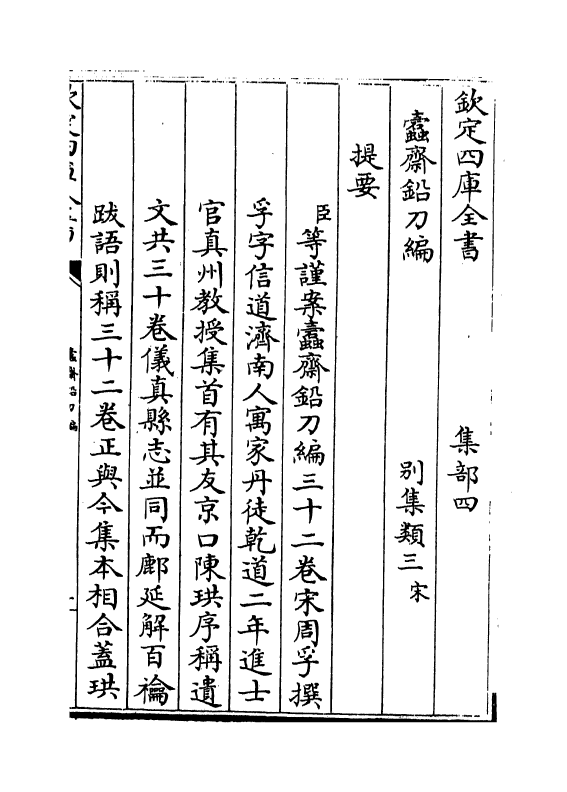 欽定四庫全書　集部四
蠹齋鉛刀編　別集類三宋
提要
臣等謹案蠹齋鉛刀編三十二卷宋周孚撰
孚字信道濟南人寓家丹徒乾道二年進士
官真州教授集首有其友京口陳珙序稱遺
文共三十卷儀真縣志並同而鄜延解百禴
跋語則稱三十二卷正與今集本相合蓋珙
蠹齋鉛刀編